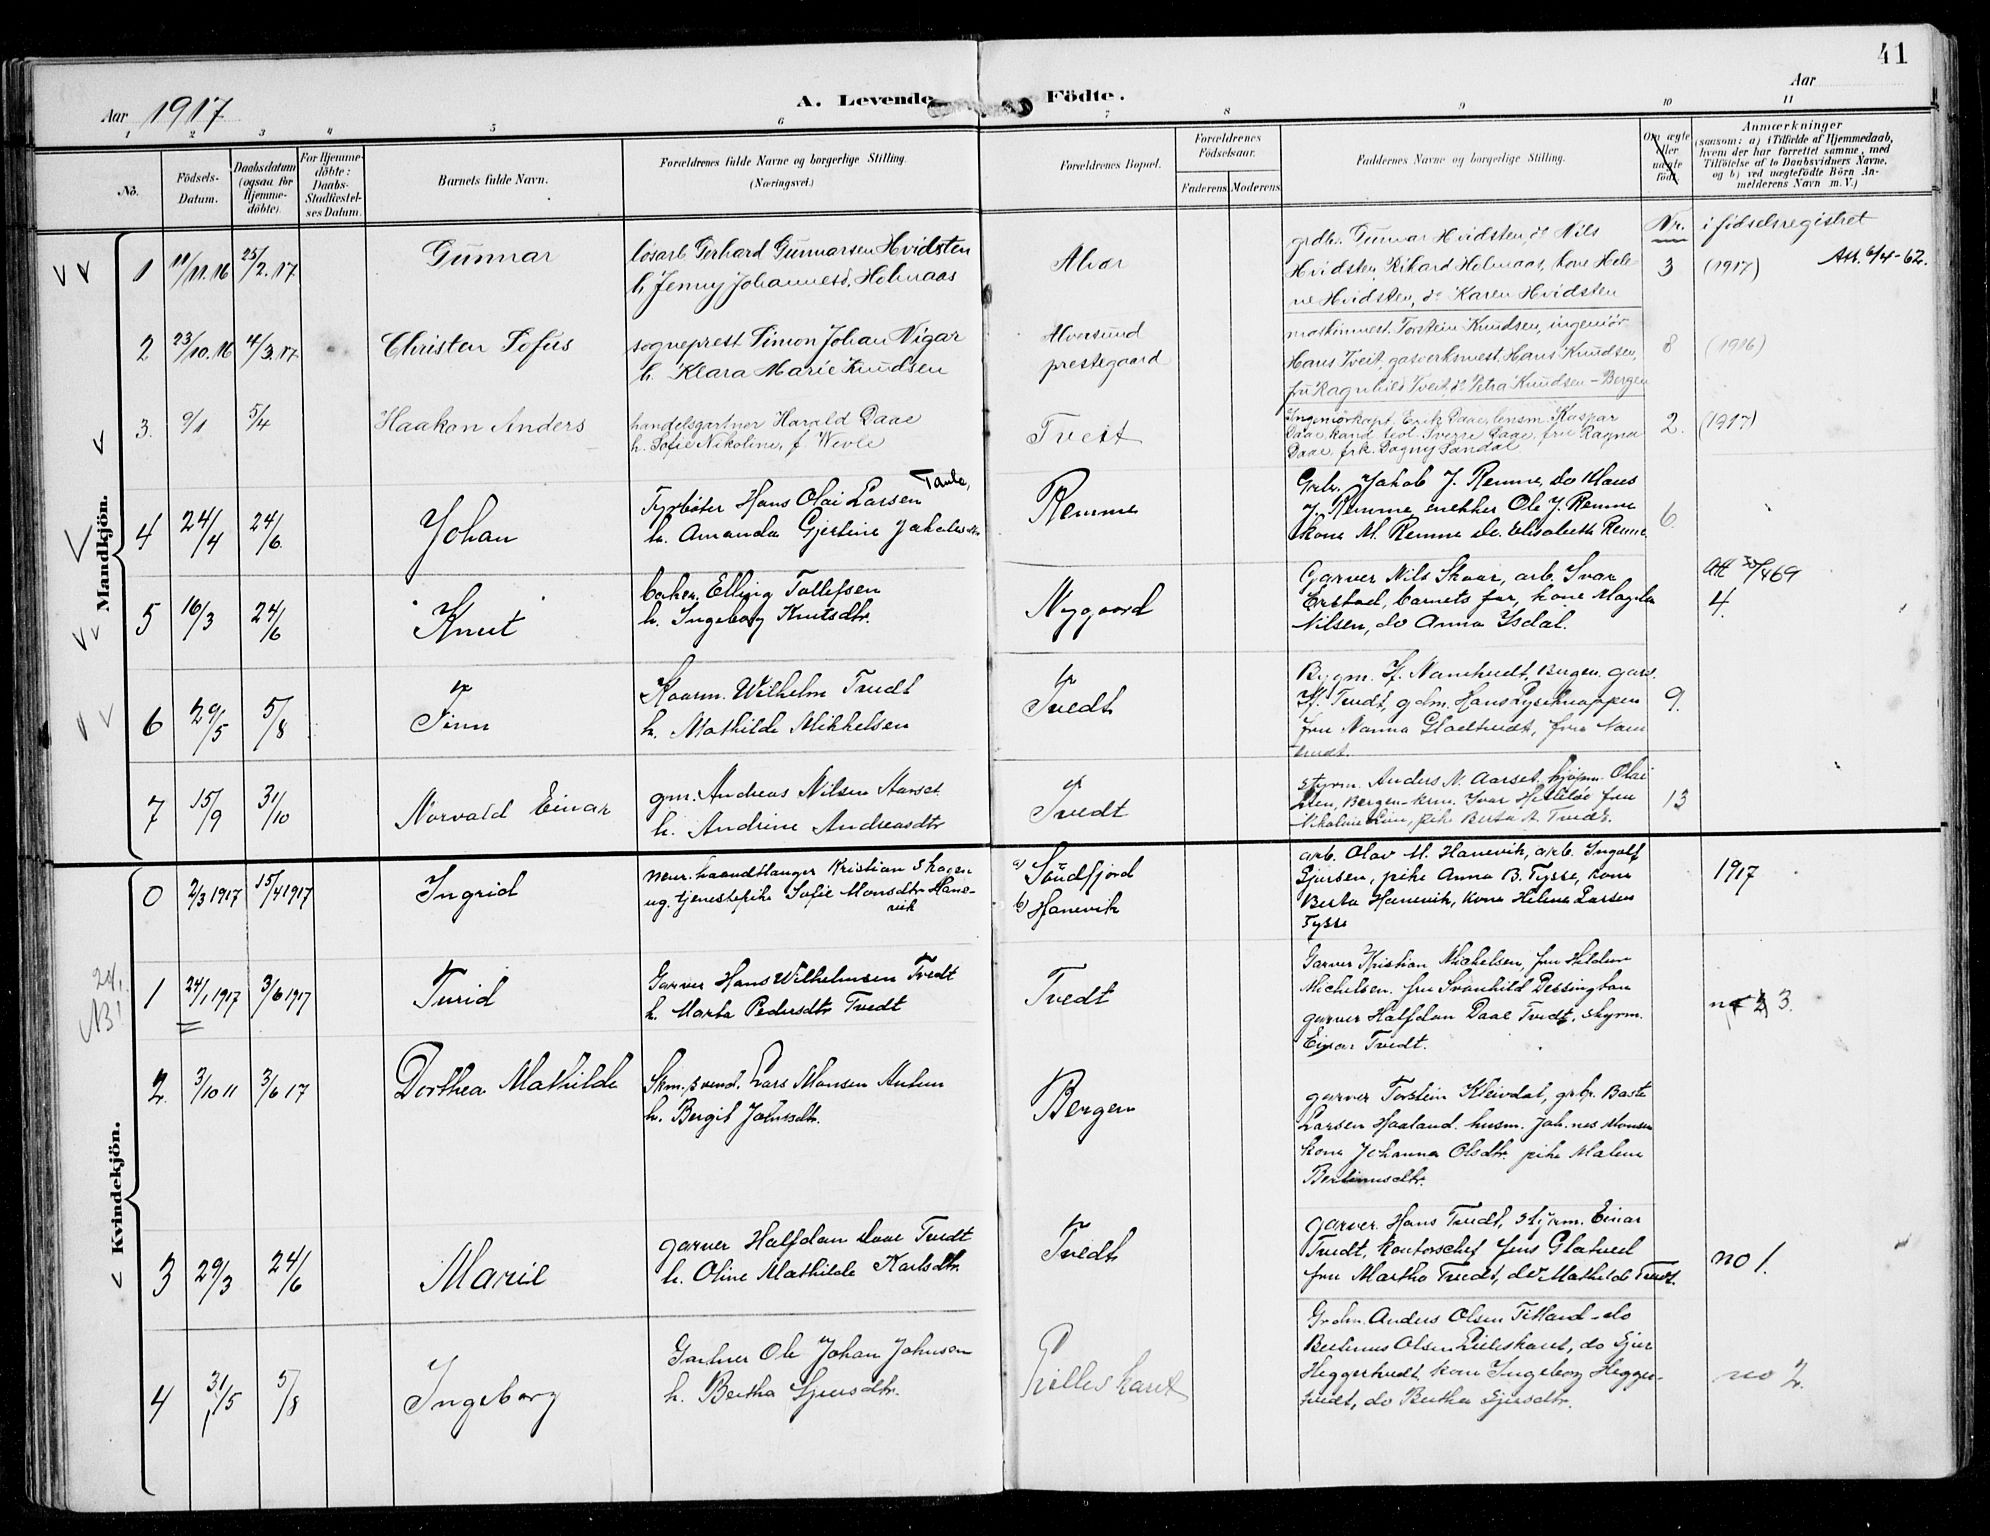 41
Aar 1917
A. Levende Födte.
Aar
1 2 3 4 5 6 7 8 9 10 11
No.
Födsels-Datum.
Daabsdatum (ogsaa for Hjemme-döbte).
For Hjemme-döbte: Daabs-Stadfæstel-ses Datum.
Barnets fulde Navn.
Forældrenes fulde Navne og borgerlige Stilling.
(Næringsvei.)
Forældrenes Bopæl.
Forældrenes Födselsaar.
Faderens. Moderens.
Faddernes Navne og borgerlige Stilling.
Om ægte eller uægte födt.
Anmærkninger
(saasom: a) i Tilfælde af Hjemmedaab,
hvem der har forrettet samme, med
Tilföielse af to Daabsvidners Navne,
og b) ved uægtefödte Börn An-
melderens Navn m. V.)
Nr. i födselsregistret
Mandkjön.
1 11/11.16 25/2.17 Gunnar
løsarb. Gerhard Gunnarsen Hvidsten
h. Jenny Johannesd. Holmaas
Alvær
grdbr. Gunnar Hvidsten, do Nils
Hvidsten, Rikard Holmaas, kone Hele-
ne Hvidsten, do Karen Hvidsten
3 (1917) Att. 6/4-62.
2 23/10.16 4/3.17 Christen Sofus
sogneprest Simon Johan Nigar
h. Klara Marie Knudsen
Alversund
prestegaard
maskinmest. Torstein Knudsen, ingeniør
Hans Tveit, gasverksmest. Hans Knudsen,
fru Ragnhild Tveit, do Petra Knudsen - Bergen
8 (1916)
3. 9/1 5/4 Haakon Anders
handelsgartner Harald Daae
h. Sofie Nikoline, f. Wevle
Tveit
Ingeniørkapt. Erik Daae, lensm. Kaspar
Daae, kand. teol. Sverre Daae, fru Ragna
Daae, frk. Dagny Sandal
2. (1917)
4 24/4 24/6 Johan
Fyrbøter Hans Olai Larsen Taule,
h. Amanda Gjertine Jakobsdtr.
Remme
Grbr. Jakob J. Remme, do Klaus
J. Remme, snekker Ole J. Remme
kone M. Remme do. Elisabeth Remme
6.
5 16/3 24/6 Knut
baker. Elling Tollefsen
h. Ingeborg Knutsdtr.
Nygaard
Garver Nils Skaar, arb. Ivar
Erstad, barnets far, kone Magda
Nilsen, do Anna Isdal.
4.
6 29/5 5/8 Finn
Kaarm. Wilhelm Tvedt
h. Mathilde Mikkelsen
Tvedt
fru Nanna Glatvedt, frue Nam
tvedt.
9.
7 15/9 31/10 Norvald Einar
gm. Andreas Nilsen Aarset
h. Andrine Andreasdtr
Tvedt
styrm. Anders N. Aarset, kjøpm. Olai
Lien, Bergen - krm. Ivar fru
Nikoline Lien, pike Berta A. Tvedt.
13
Kvindekjön.
0 2/3 1917 15/4 1917 Ingrid
neur. haandtlanger Kristian Skogen
ug. tjenestepike Sofie Monsdtr Hane-
vik
a) Söndfjord
b) Hanevik
arb. Olav M. Hanevik, arb. Ingolf
Sjursen, pike Anna B. Tysse, kone
Berta Hanevik, kone Helene Larsen
Tysse
1917
24.
NB!
1 24/1 1917 3/6 1917 Turid
Garver Hans Wilhelmsen Tvedt
h. Marta Pedersdtr Tvedt
Tvedt
Garver Kristian Michelsen, fru Hildur
Michelsen. fru Svanhild Dessington
garver Halfdan Daae Tvedt, styrm.
Einar Tvedt.
3.
2. 3/10 11 3/6 17 Dorthea Mathilde
Skm.svend. Lars Monsen
h. Bergit Johnsdtr.
Bergen
garver Torstein Kleivdal, grbr. Baste
Larsen Haaland. husm. Joh.nes Monsen
kone Johanna Olsdtr. pike Malene
3 29/3 24/6 Marie
garver Halfdan Daae Tvedt
h. Oline Mathilde Karlsdtr.
Tvedt
garver. Hans Tvedt, styrm. Einar
Tvedt, kontorschef Jens Glatved
fru Martha Tvedt, do Mathilde Tvedt.
no 1.
4 31/5 5/8 Ingeborg
Gartner Ole Johan Johnsen
h. Bertha Sjursdtr.
Lilleskaret
Grdm. Anders Olsen Titland - do
Bertinus Olsen Lilleskaret, do Sjur
Heggertvedt, kone Ingeborg Hegger-
tvedt, do Bertha Sjursdtr.
no 2.